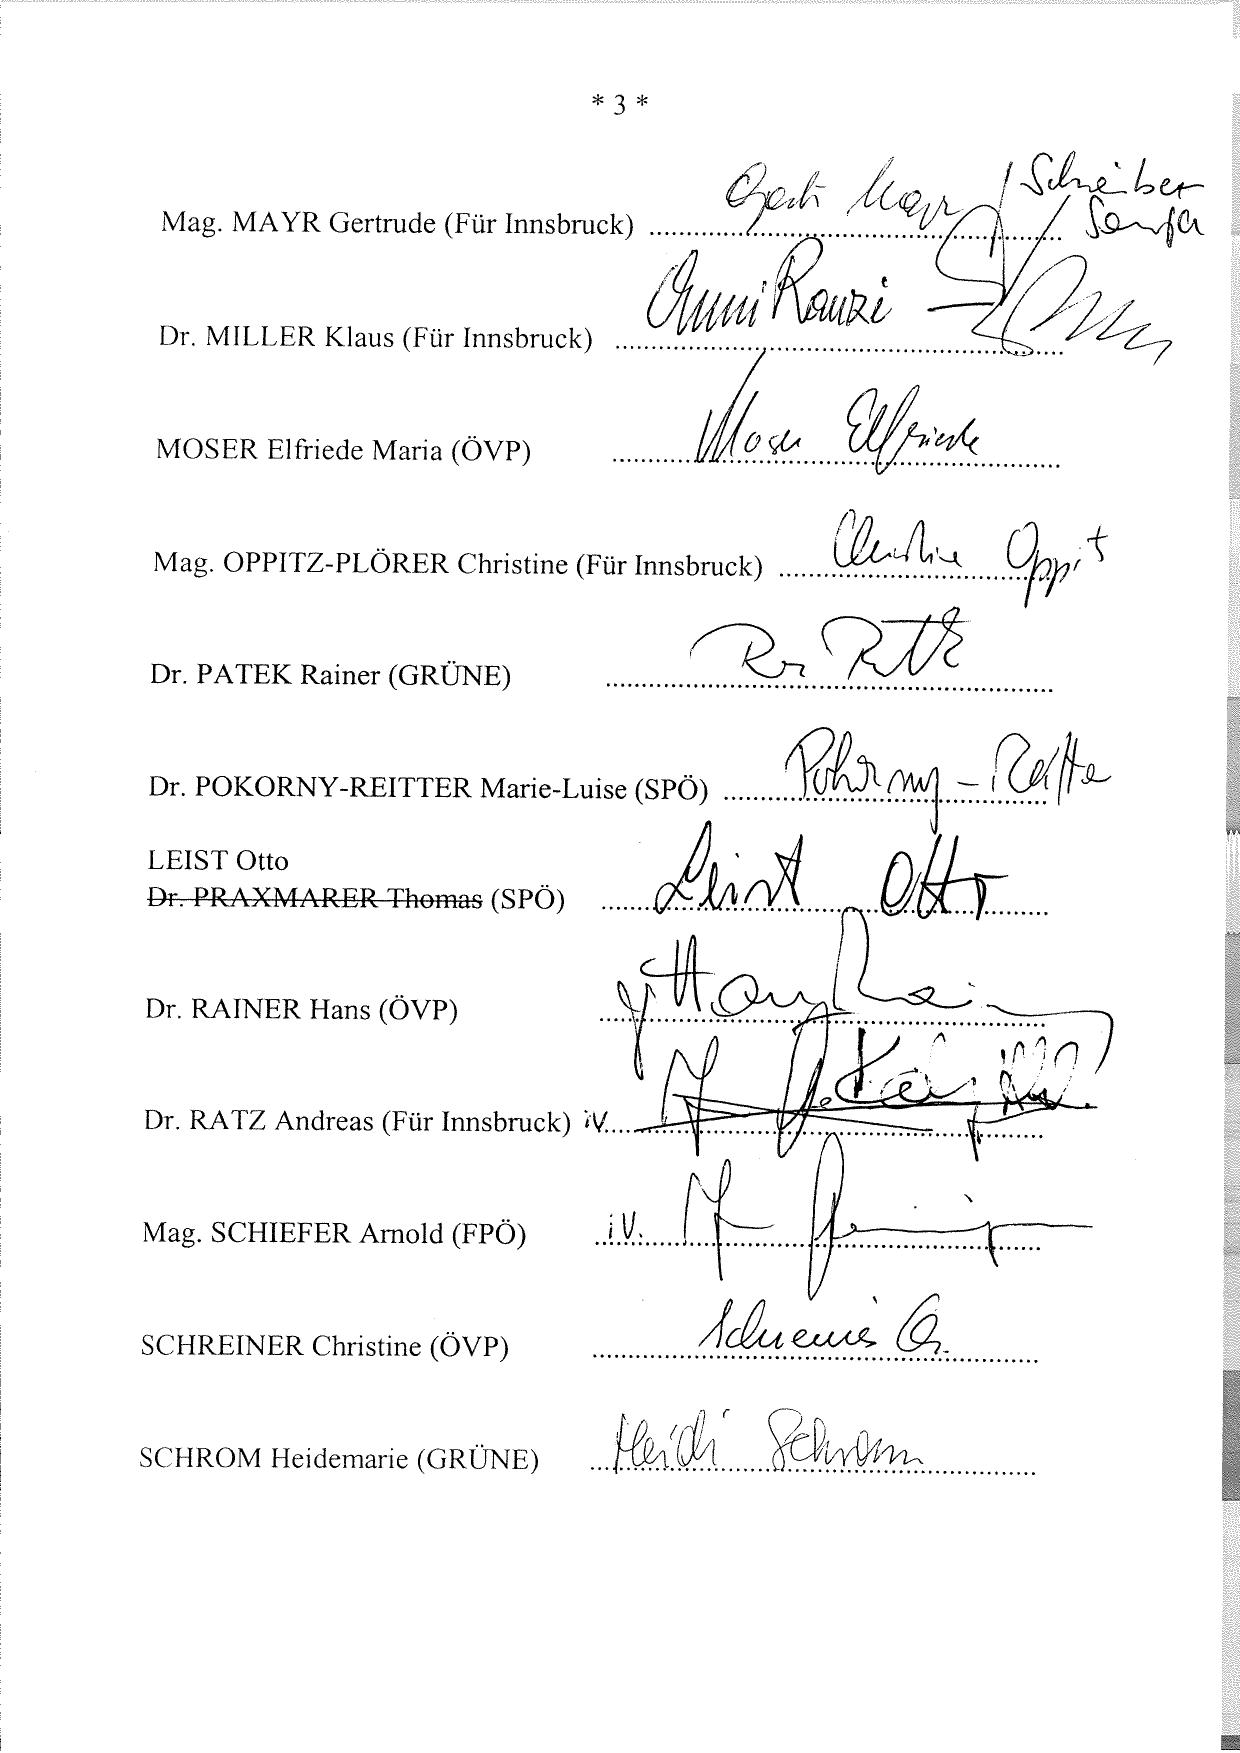 * 3 *
Mag. MAYR Gertrude (Für Innsbruck) Mayr / Schreiber
Sonja
Dr. MILLER Klaus (Für Innsbruck)
MOSER Elfriede Maria (ÖVP) Moser Elfriede
Mag. OPPITZ-PLÖRER Christine (Für Innsbruck) Christine Oppitz
Dr. PATEK Rainer (GRÜNE)
Dr. POKORNY-REITTER Marie-Luise (SPÖ) Pokorny-Reitter
LEIST Otto
Dr. PRAXMARER Thomas (SPÖ) Leist Otto
Dr. RAINER Hans (ÖVP)
Dr. RATZ Andreas (Für Innsbruck) iV.
Mag. SCHIEFER Arnold (FPÖ) iV.
SCHREINER Christine (ÖVP) Schreiner
SCHROM Heidemarie (GRÜNE) Heidi Schrom